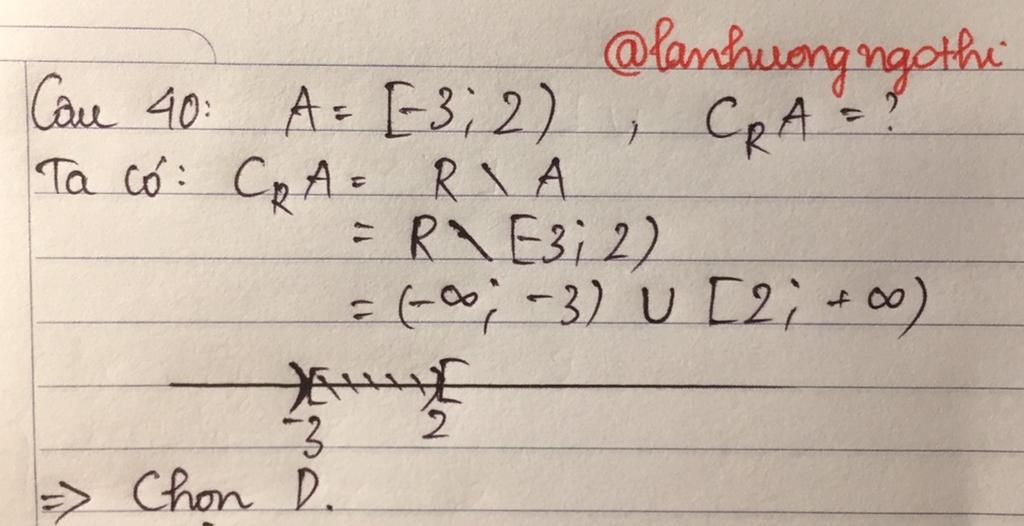 @lanhuongngothi
Câu 40: A = [-3; 2) , C_R A = ?
Ta có: C_R A = R \ A
= R \ [-3; 2)
= (-∞; -3) ∪ [2; +∞)
)[ )[
-3 2
=> Chọn D.